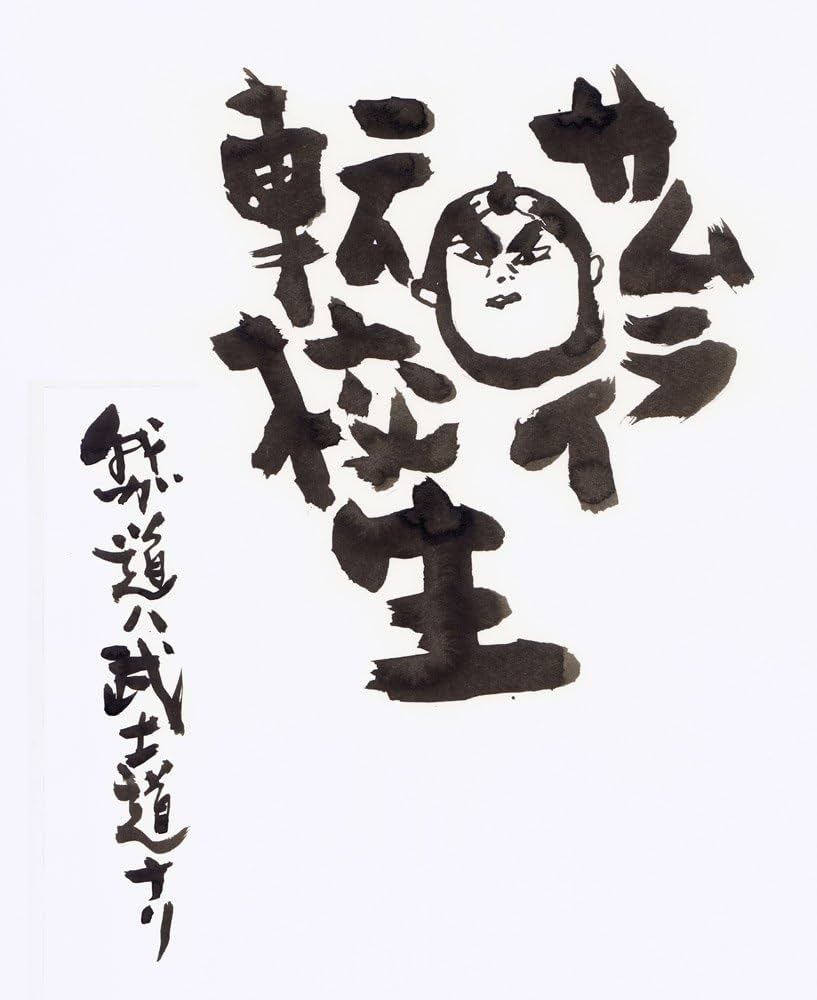 サムライ
転校生
我が道ハ武士道ナリ